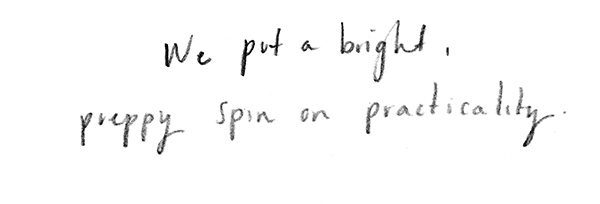 We put a bright,
preppy spin on practicality.